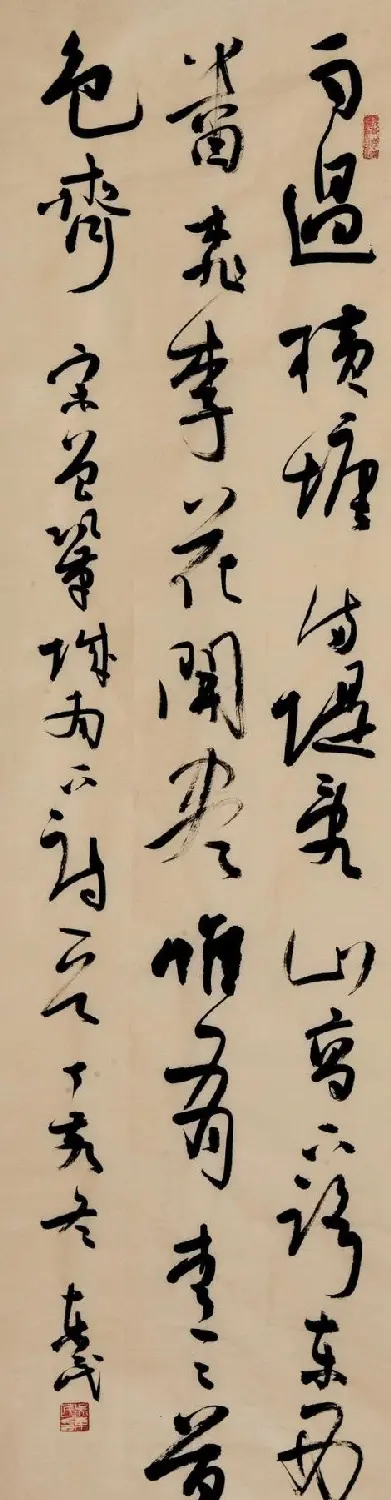 雨過橫塘滿堤亂山高下路東西
番桃李花開盡惟有青青草
色齊 宋曾鞏城南詩一 丁亥冬